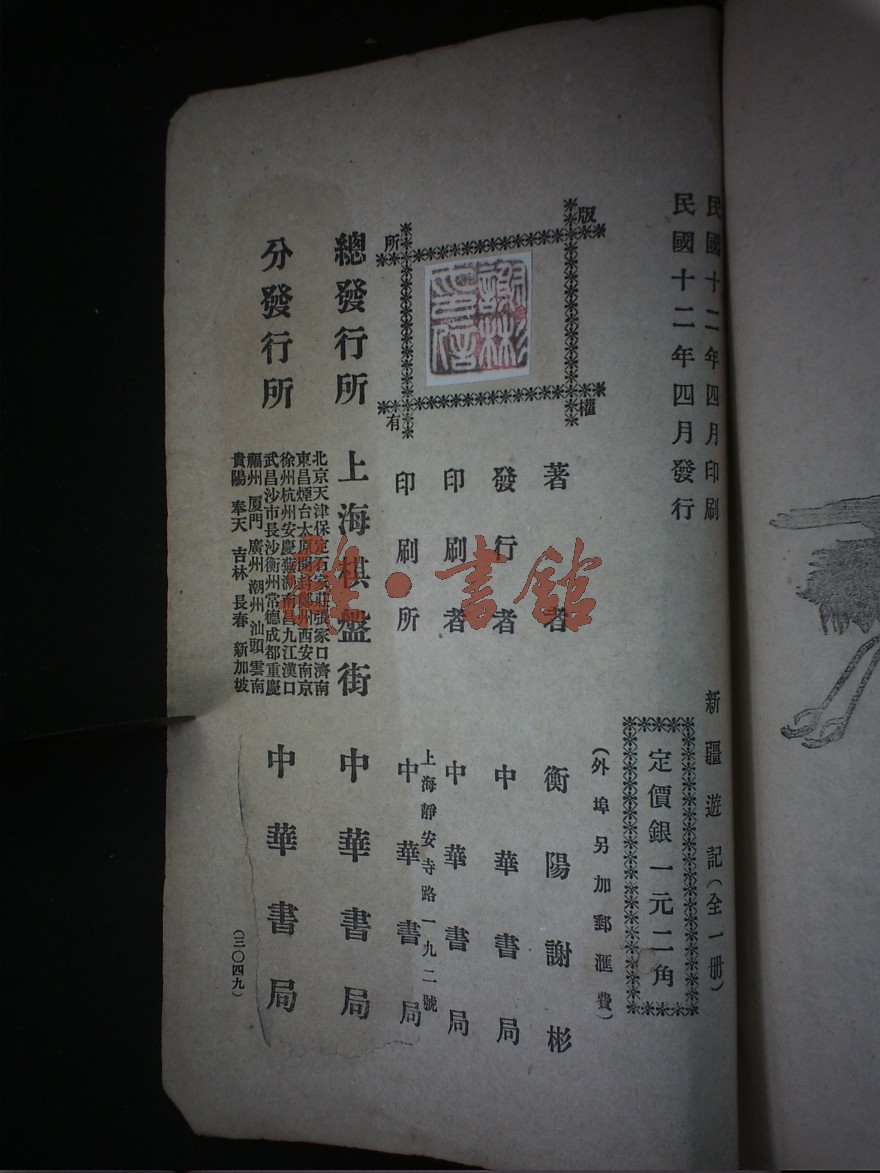 民國十二年四月印刷
民國十二年四月發行
新疆遊記(全一册)
定價銀一元二角
(外埠另加郵滙費)
版權所有
著者 衡陽謝彬
發行者 中華書局
印刷者 中華書局
上海靜安寺路一九二號
印刷所 中華書局
總發行所 上海棋盤街 中華書局
分發行所
北京天津保定石家莊張家口濟南
東昌煙台太原開封鄭州西安南京
徐州杭州安慶蕪湖南昌九江漢口
武昌沙市長沙衡州常德成都重慶
福州 厦門 廣州 潮州 汕頭 雲南
貴陽 奉天 吉林 長春 新加坡
中華書局
(三〇四九)
謝彬印信
雅·書館